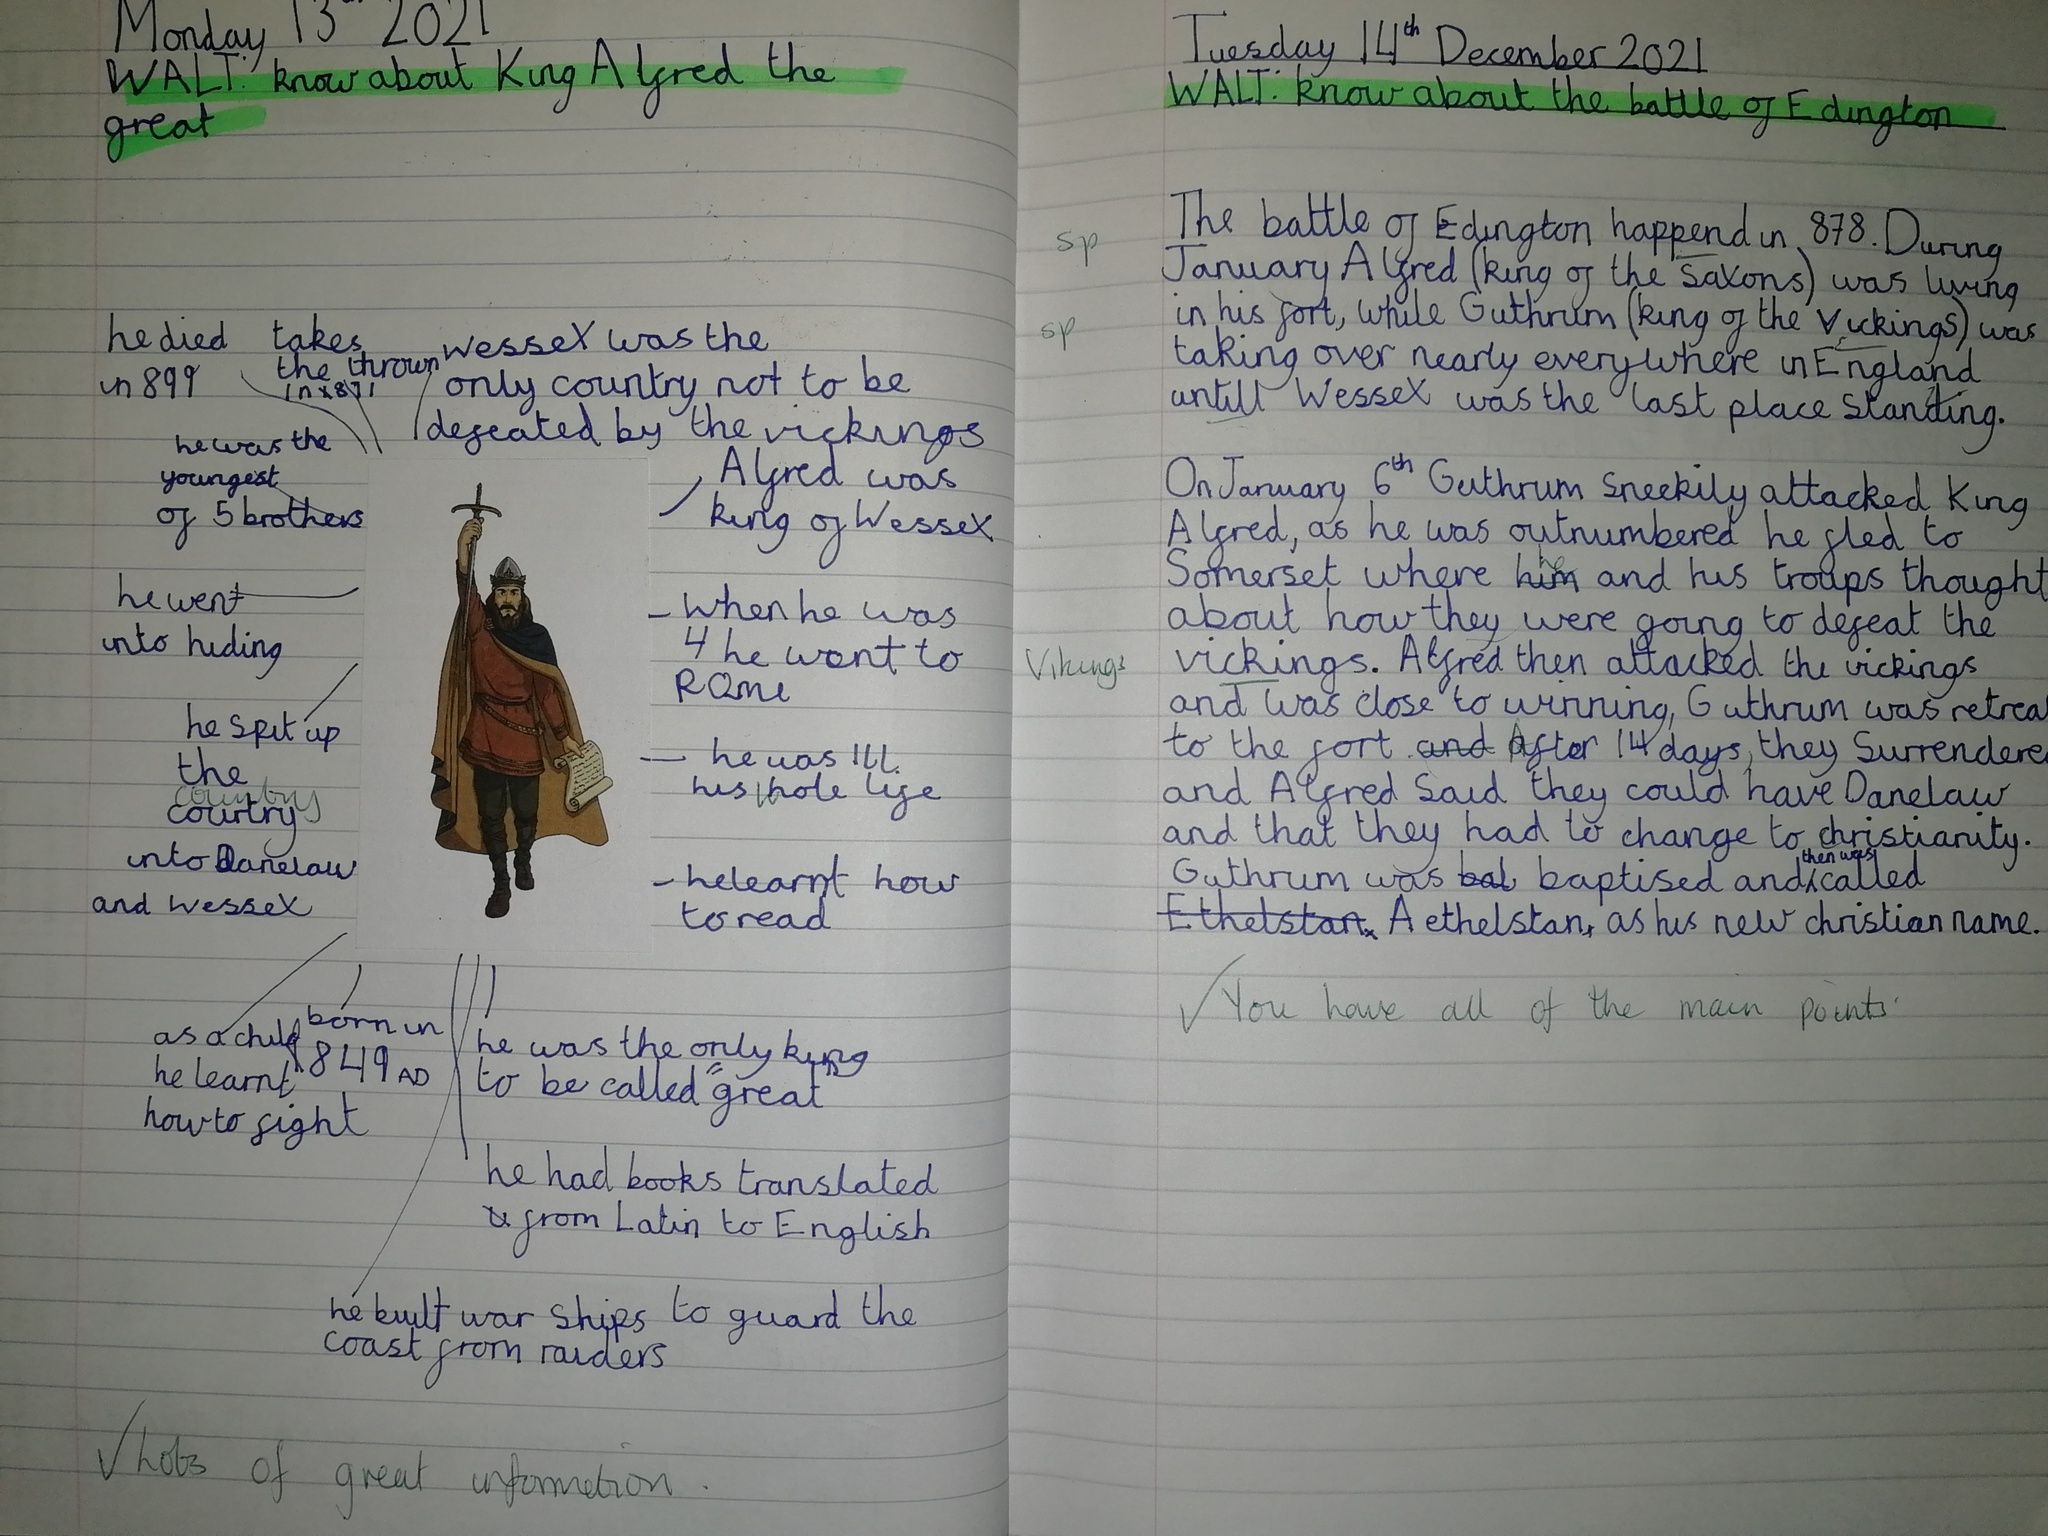 Monday 13th 2021
WALT: know about King Alfred the
great
he died
in 899
takes
the thrown
in 871
Wessex was the
only country not to be
defeated by the vickings
he was the
youngest
of 5 brothers
Alfred was
king of Wessex
he went
into hiding
- when he was
4 he went to
ROme
he spit up
the
country
country
into Danelaw
and Wessex
- he was Ill.
his whole life
- he learnt how
to read
as a child
he learnt
how to fight
born in
849 AD
he was the only king
to be called "great"
he had books translated
from Latin to English
he built war ships to guard the
coast from raiders
✓ Lots of great information.
Tuesday 14th December 2021
WALT: know about the battle of Edington
sp
The battle of Edington happend in 878. During
January Alfred (king of the Saxons) was living
sp
in his fort, while Guthrum (king of the Vickings) was
taking over nearly everywhere in England
untill Wessex was the last place standing.
On January 6th Guthrum sneekily attacked King
Alfred, as he was outnumbered he fled to
Somerset where him he and his troups thought
about how they were going to defeat the
Vikings
vickings. Alfred then attacked the vickings
and was close to winning, Guthrum was retreat
to the fort and After 14 days, they Surrendere
and Alfred Said they could have Danelaw
and that they had to change to christianity.
Guthrum was baptised and then was called
Ethelstan. Aethelstan, as his new christian name.
✓ You have all of the main points.